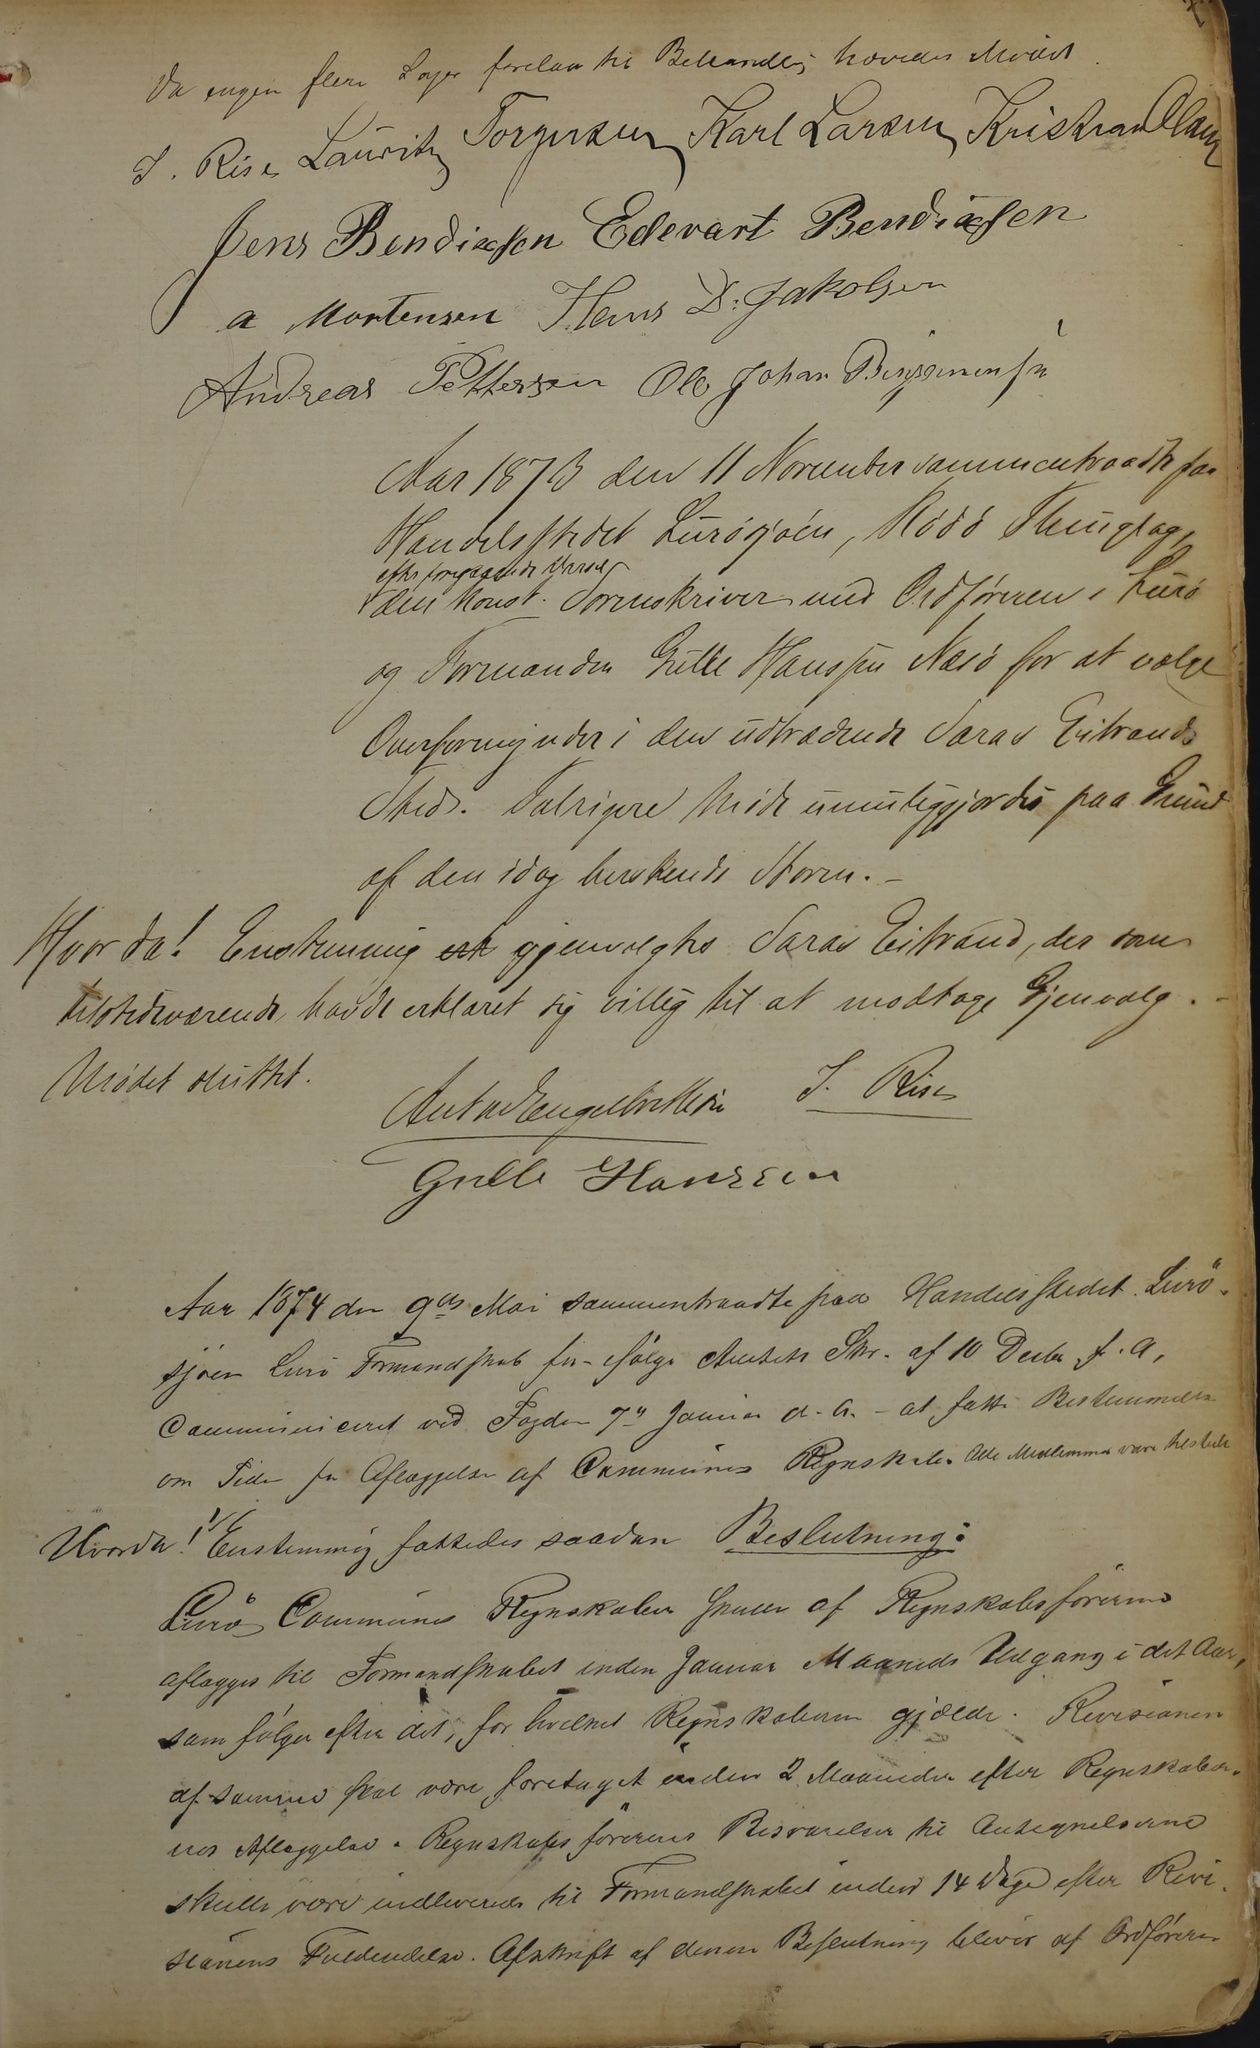 Da ingen flere Sager forelaa til Behandling hævedes Mødet.
I. Rise Lauritz Torgersen Karl Larsen Kristian Olsen
Jens Bendixsen Edevart Bendixsen
A Mortensen Hans D. Jakobsen
Andreas Pettersen Ole Johan Benjaminsen
Aar 1873 den 11 November sammentraadte paa
Handelsstedet Lurøsjøen, Rødø Thinglag,
efter foregaaende Varsel
den konst. Sorenskriver med Ordføreren i Lurø
og Formanden Gulle Hanssen Næsø for at vælge
Overformynder i den udtrædende Saras Eitrands
Sted. Talrigere Møde umuliggjordes paa Grund
af den idag herskende Storm. -
Hvorda! Enstemmig gjenvalgtes Saras Eitrand, der som
tilstedeværende havde erklæret sig villig til at modtage Gjenvalg. -
Mødet sluttet.
Anton Engelbrektsen I. Rise
Gulle Hanssen
Aar 1874 den 9de Mai sammentraadte paa Handelsstedet Lurö-
sjöen Lurö Formandskab for - ifölge Amtets Skr. af 10 Decbr f. A.,
communiceret ved Fogden 7 Januar d. A. - at fatte Bestemmelse
om Tiden for Aflæggelse af Communens Regnskaber. Alle Medlemmer vare tilstede
Hvorda! Enstemmig fattedes saadan Beslutning:
Lurö Communes Regnskaber skulle af Regnskabsförerne
aflægges til Formandskabet inden Januar Maaneds Udgang i det Aar,
som følger efter det, for hvilket Regnskaberne gjælde. Revisionen
af samme skal være foretaget inden 2 Maaneder efter Regnskaber-
nes Aflæggelse. Regnskabsförerens Besvarelser til Antegnelserne
skulle være indleverede til Formandskabet inden 14 Dage efter Revi-
sionens Fuldendelse. Afskrift af denne Beslutning bliver af Ordföreren